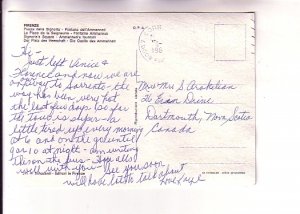 FIRENZE
Piazza della Signoria - Fontana dell'Ammannati
La Place de la Seigneurie - Fontaine Ammannati
Signoria's Square - Ammannati's fountain
Der Platz des Herrschaft - Die Quelle des Ammannati
Hi -
Just left Venice &
Florence and now we are
on way to Sorrento - the
has been very hot
the last few days
the tour is super - a
little tired up every morning
at 6 and on the go until
9 or 10 at night - Am writing
this on the bus - Hope all is
well with you - See you soon
will have lots to talk about
Love
Mr & Mrs S Arakelian
Drive
Dartmouth, Nova Scotia
Canada